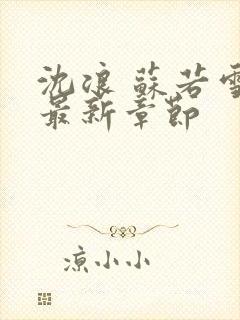 沈浪 蘇若雪
最新章節
涼小小